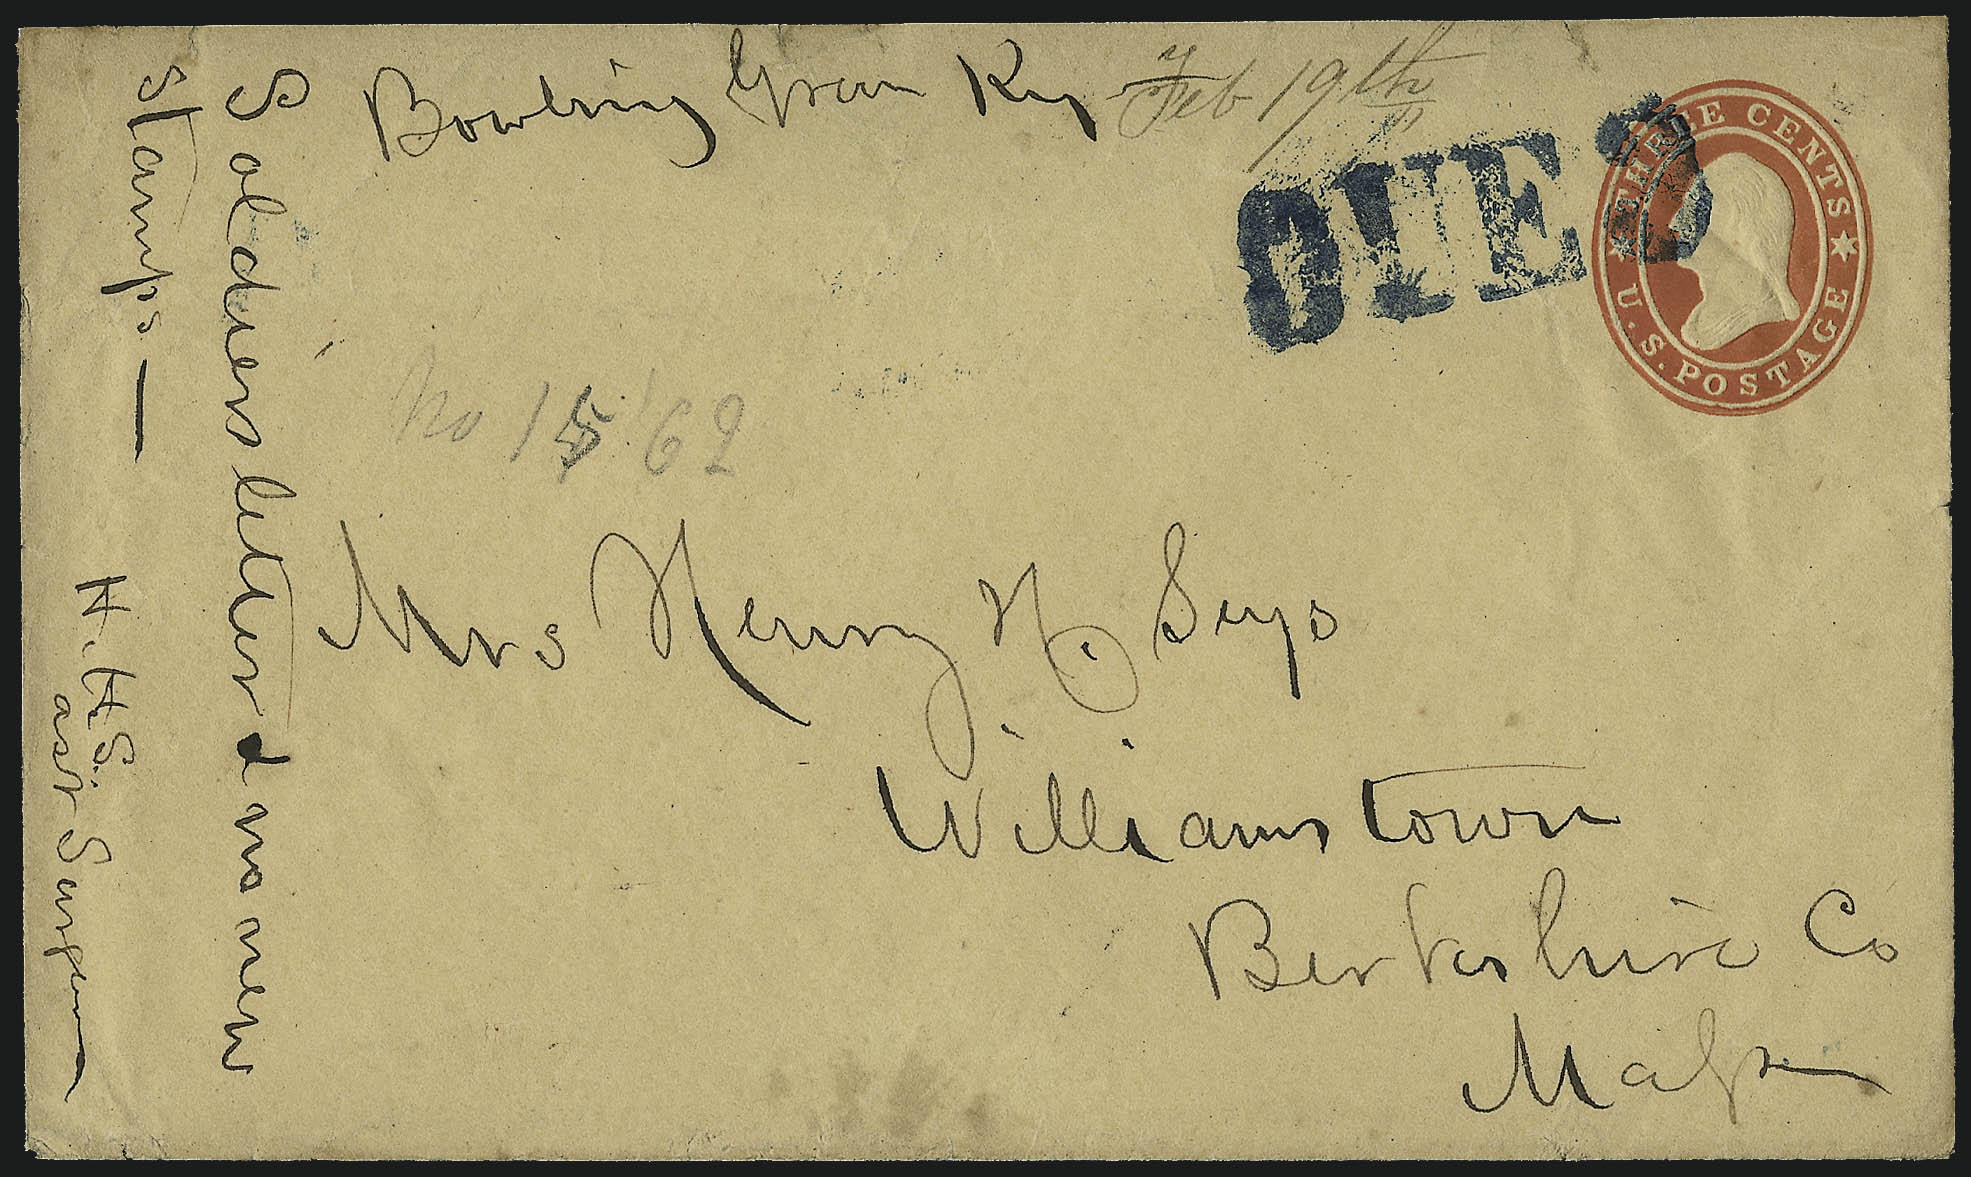 Bowling Green Ky Feb 19th
DUE 3
THREE CENTS
U.S. POSTAGE
No 15 '62
Mrs Henry H. Seys
Williamstown
Berkshire Co
Mass
Soldiers letter & no new
stamps —
H. H. S.
asst Surgeon